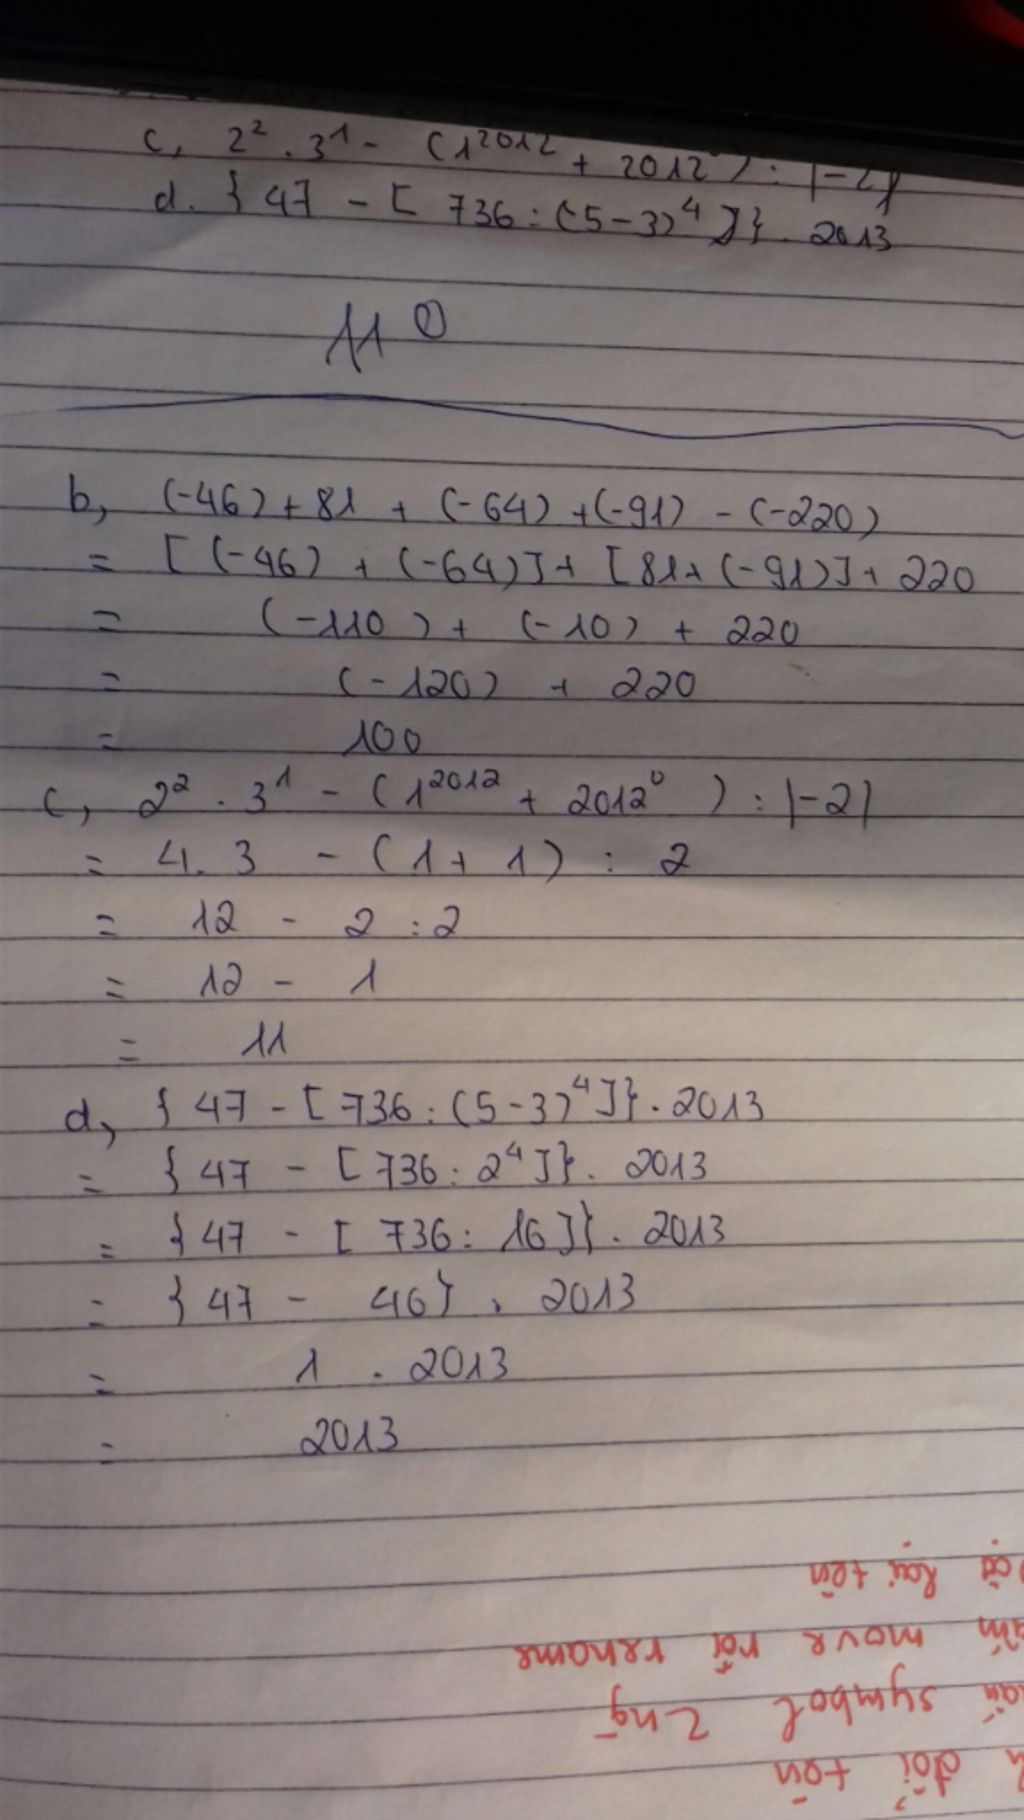 c, 2² . 3¹ - (1²⁰¹² + 2012⁰) : |-2|
d. { 47 - [ 736 : (5-3)⁴ ]} . 2013
b, (-46) + 81 + (-64) + (-91) - (-220)
= [ (-46) + (-64)] + [81 + (-91)] + 220
= (-110) + (-10) + 220
= (-120) + 220
= 100
c, 2² . 3¹ - (1²⁰¹² + 2012⁰ ) : |-2|
= 4. 3 - (1 + 1) : 2
= 12 - 2 : 2
= 12 - 1
= 11
d, { 47 - [ 736 : (5-3)⁴]} . 2013
= { 47 - [ 736 : 2⁴]} . 2013
= { 47 - [ 736 : 16]} . 2013
= { 47 - 46} . 2013
= 1 . 2013
= 2013
đổi tên
symbol
move rồi rename
lại tên